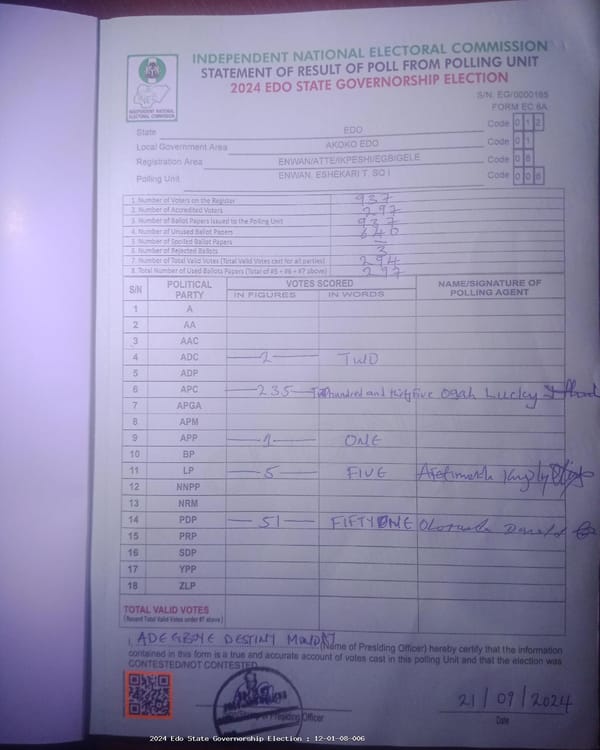 INDEPENDENT NATIONAL ELECTORAL COMMISSION
STATEMENT OF RESULT OF POLL FROM POLLING UNIT
2024 EDO STATE GOVERNORSHIP ELECTION
INDEPENDENT NATIONAL ELECTORAL COMMISSION
S/N. EG/0000165
FORM EC 8A
State EDO Code 0 1 2
Local Government Area AKOKO EDO Code 0 1
Registration Area ENWAN/ATTE/IKPESHI/EGBIGELE Code 0 8
Polling Unit ENWAN, ESHEKARI T. SQ I Code 0 0 6
1. Number of Voters on the Register 937
2. Number of Accredited Voters 297
3. Number of Ballot Papers Issued to the Polling Unit 937
4. Number of Unused Ballot Papers 640
5. Number of Spoiled Ballot Papers –
6. Number of Rejected Ballots 3
7. Number of Total Valid Votes (Total Valid Votes cast for all parties) 294
8. Total Number of Used Ballots Papers (Total of #5 + #6 + #7 above) 297
S/N POLITICAL PARTY VOTES SCORED NAME/SIGNATURE OF POLLING AGENT
IN FIGURES IN WORDS
1 A
2 AA
3 AAC
4 ADC 2 TWO
5 ADP
6 APC 235 Two hundred and thirty five Ogah Lucky
7 APGA
8 APM
9 APP 1 ONE
10 BP
11 LP 5 FIVE
12 NNPP
13 NRM
14 PDP 51 FIFTY ONE
15 PRP
16 SDP
17 YPP
18 ZLP
TOTAL VALID VOTES
(Record Total Valid Votes under #7 above)
I, ADEGBOYE DESTINY MONDAY (Name of Presiding Officer) hereby certify that the information
contained in this form is a true and accurate account of votes cast in this polling Unit and that the election was
CONTESTED/NOT CONTESTED
Presiding Officer
21/09/2024
Date
2024 Edo State Governorship Election : 12-01-08-006